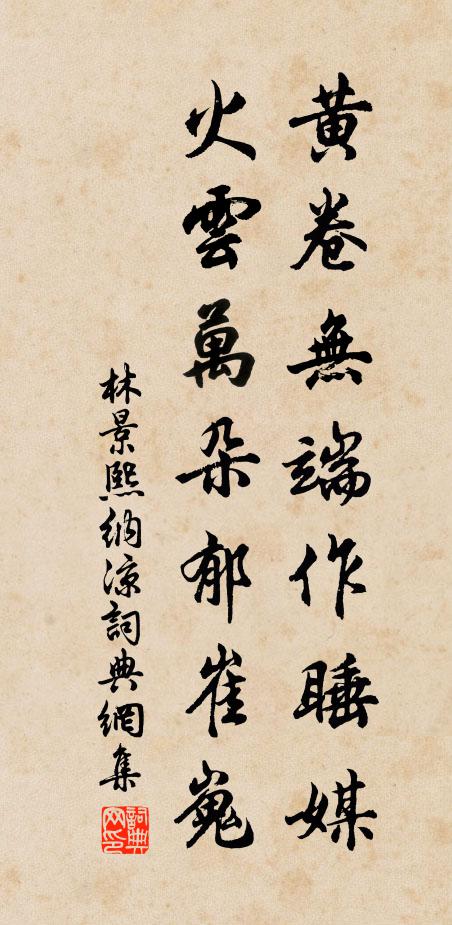 黄卷無端作睡媒
火雲萬朵郁崔嵬
林景熙納涼詞典網集
詞典網印